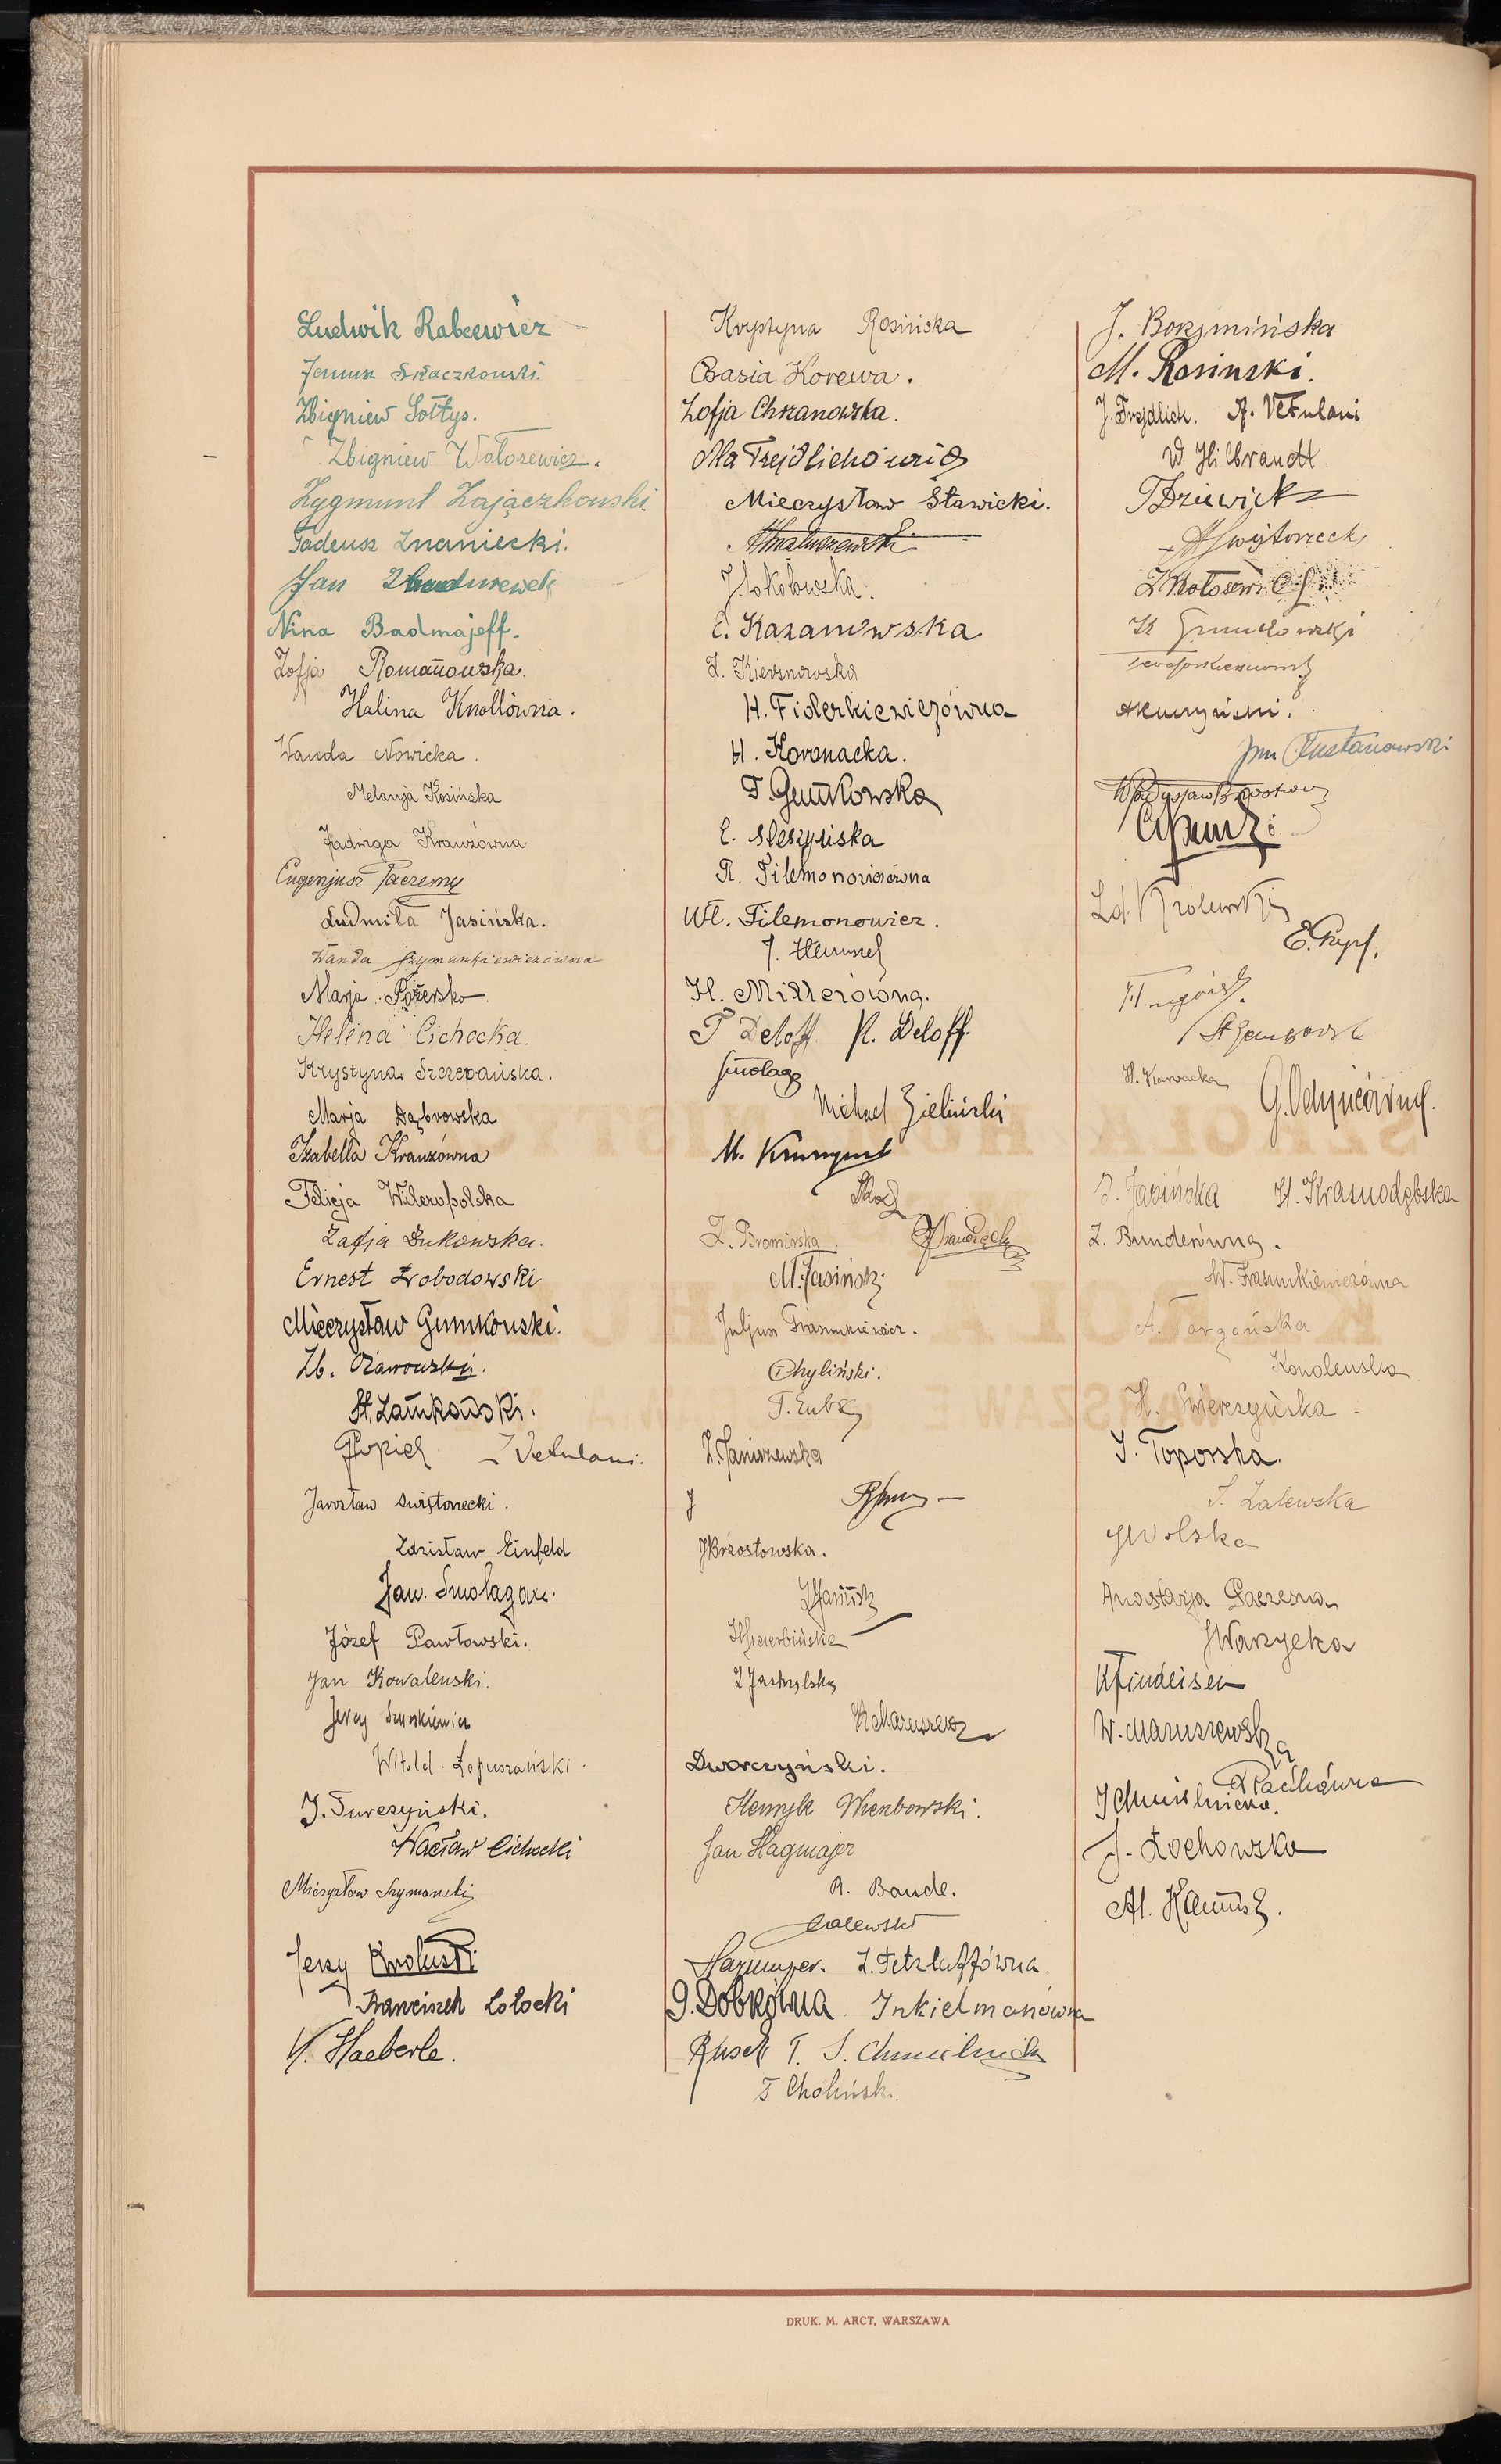 Ludwik Rabcewicz
Janusz Skaczkowski.
Zbigniew Sołtys.
Zbigniew Wołosewicz.
Zygmunt Zajączkowski.
Tadeusz Znaniecki.
Jan
Nina Badmajeff.
Zofja Romanowska.
Halina Knollówna.
Wanda Nowicka.
Melanja Kosińska
Jadwiga Krauzówna
Eugenjusz Paczesny
Ludmiła Jasińska.
Wanda Szymankiewiczówna
Marja Pożersko
Helena Cichocka.
Krystyna Szczepańska.
Marja Dąbrowska
Izabella Krauzówna
Felicja Wileropolska
Zofja Żukowska.
Ernest Łobodowski
Mieczysław Gumkowski.
Zb. Ożarowski.
St. Zamkowski.
Popiel Z Vetulani.
Jarosław Świętorzecki.
Zdzisław Einfeld
Jan. Smolaga
Józef Pawłowski.
Jan Kowalewski.
Jerzy
Witold Łopuszański
J. Turczyński.
Wacław Cichocki
Mieczysław Szymański
Jerzy Krolusti
Franciszek Łotocki
W. Haeberle.
Krystyna Rosińska
Basia Korewa.
Zofja Chrzanowska.
Ala Trejdlichówna
Mieczysław Sławicki.
Matuszewski
J Sokołowska.
E. Kazanowska
Z. Kiersnowska
H. Fiderkiewiczówna
H. Koronacka.
F. Gumkowska
E. Jeszyńska
R. Filemonowiczówna
Wł. Filemonowicz.
J. Hummel
H. Millerówna.
T Deloff R. Deloff.
Smolaga
Michael Zieliński
M.
Z. Bromirska
M. Jasiński
Juljusz Frasunkiewicz.
Chyliński.
T. Zub
Z. Janiszewska
J
J Brzostowska.
J Hanusz
H Wierzbińska
Z Jastrzębska
Dworczyński.
Henryk Wierzbowski.
Jan Hagmajer
R. Baude.
Zalewski
Hagmajer. Z. Tetzlaffówna
J. Dobkówna Inkielmanówna
Rusek T. S. Chmielnicka
T Choliński.
J. Borzymińska
M. Rosinski.
J. Trejdlich. A. Vetulani
W Hilbrandt
T Dziewicki
A Świętorzecki
Z Wołosewicz
K Gumkowski
A Kuczyński.
Jan Pustanowski
Władysław Brzostowski
Zd. Królewski
E. Krypf.
H. Karwacka G. Odyńcówna.
J. Jasińska H. Krasnodębska
Z. Bunderówna.
W. Frasunkiewiczówna
A. Targońska
Kowalewska
H. Świerszyńska.
J. Toporska.
J. Zalewska
J Wolska
Anastazja Paczesna
J Warzycka
K Findeisen
W. Maruszewska
A Paciówna
J Chmielnicka.
J. Żochowska
Al. Hanusz.
DRUK. M. ARCT, WARSZAWA